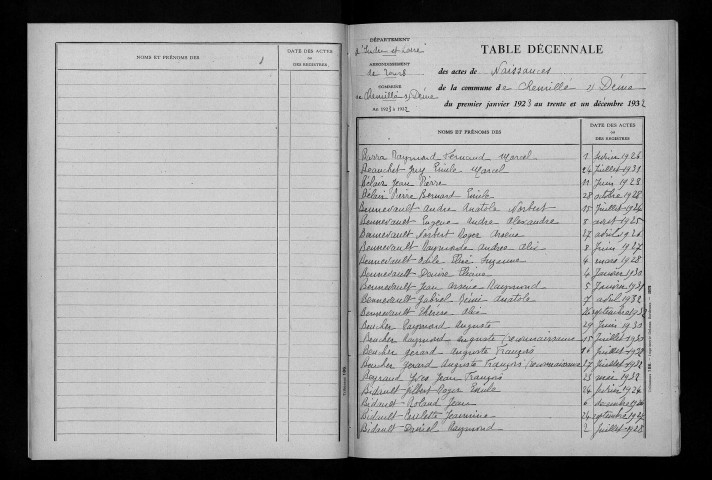 NOMS ET PRÉNOMS DES
DATE DES ACTES
OU
DES REGISTRES.
DÉPARTEMENT
d'Indre et Loire
ARRONDISSEMENT
de Tours
COMMUNE
de Chemillé s/ Dême
An 1923 à 1932
TABLE DÉCENNALE
des actes de Naissances
de la commune de Chemillé s/ Dême
du premier janvier 1923 au trente et un décembre 1932
NOMS ET PRÉNOMS DES
DATE DES ACTES
OU
DES REGISTRES
Barra Raymond Fernand Marcel 1 février 1926
Beauchet Guy Emile Marcel 24 Juillet 1931
Bélair Jean Pierre 11 Juin 1928
Bélair Pierre Bernard Emile 28 octobre 1928
Bennevault André Anatole Norbert 15 Juillet 1924
Bennevault Eugène André Alexandre 8 août 1925
Bennevault Norbert Roger Arsène 27 avril 1926
Bennevault Raymonde Andrée 8 Juin 1927
Bennevault Suzanne 4 mars 1928
Bennevault Denise 4 Janvier 1930
Bennevault Jean Arsène Raymond 5 Janvier 1931
Bennevault Gabriel Rémi Anatole 7 avril 1932
Bennevault Thérèse septembre 1932
Boucher Raymond Auguste 29 Juin 1930
Boucher Raymond Auguste (reconnaissance 15 Juillet 1930
Boucher Gérard Auguste François Juillet
Boucher Gérard Auguste François (reconnaissance 27 Juillet 1932
Beyraud Yves Jean François 25 mai 1932
Bidault Albert Roger Emile 24 février 1924
Bidault Roland Jean 6 novembre
Bidault Paulette Jeannine 24 septembre 1927
Bidault Daniel Raymond 2 Juillet 1928